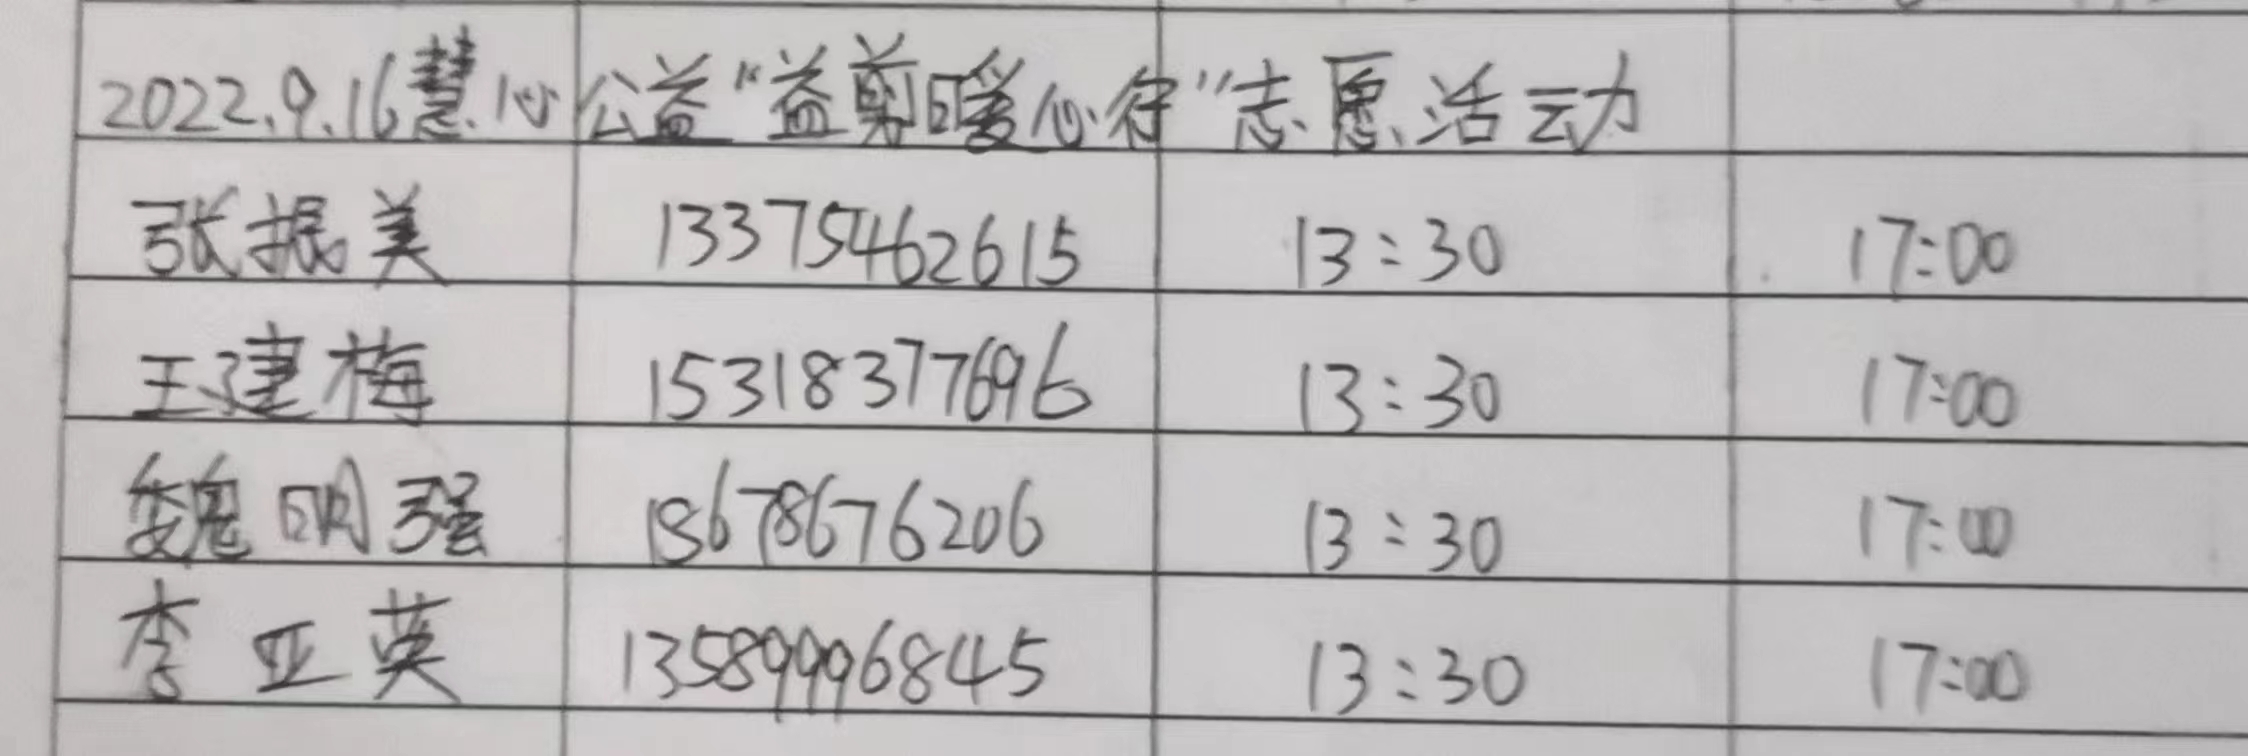 2022.9.16慧心公益“益剪暖心行”志愿活动
张振美 13375462615 13:30 17:00
王建梅 15318377696 13:30 17:00
魏明强 18678676206 13:30 17:00
李亚英 13589996845 13:30 17:00